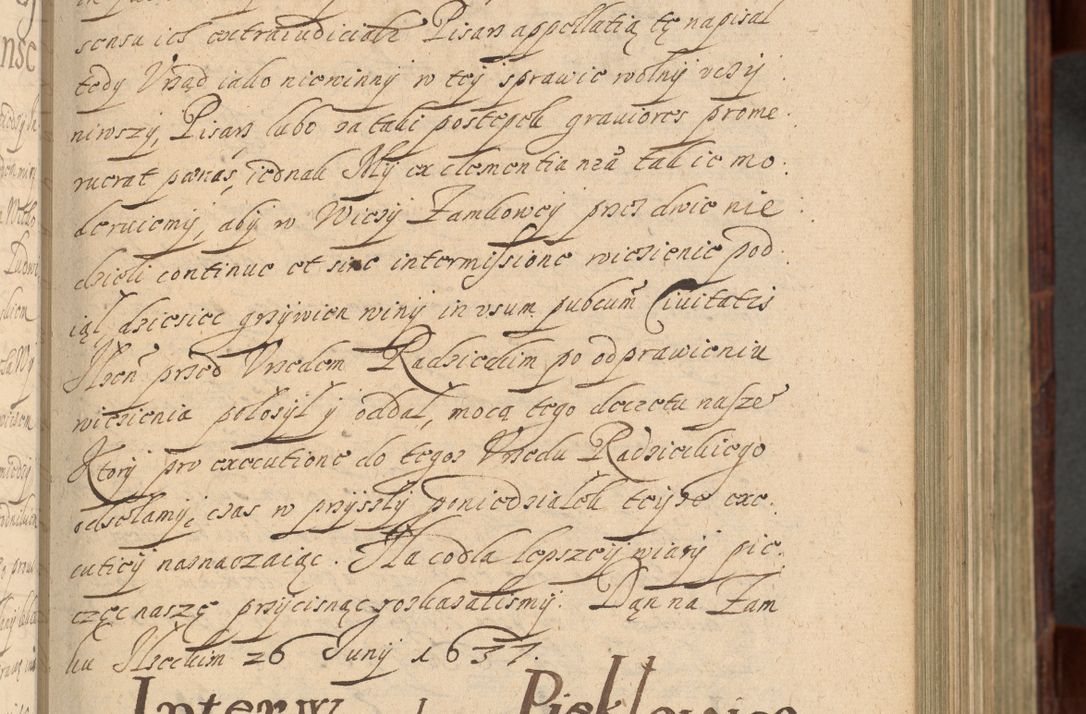 sensu ich extraiudicialr Pisarz appellatią tę napisał
tedy Vrząd iako niewinny w tey sprawie wolny vczy
niwszy, Pisarz lubo za taki postępek graviores prome
ruerat pœnas, iednak My ex clementia nra tak ie mo
deruiemy, aby w Wieży Zamkowey przez dwie nie
dzieli continuo et sine intermissione więzienie pod
iął, dziesięć grzywien winy in vsum publicum Civitatis
Ilzen przed Vrzędem Radzieckim po odprawieniu
więzienia położył y oddał, mocą tego decretu nasze
Ktory pro executione do tegoż Vrzędu Radzieckiego
odsełamy, czas w przyszły poniedziałek teyże exe
cutiey naznaczaiąc. Na co dla lepszey wiary pie
częć naszę przycisnąć roskazalismy. Dan na Zam
ku Ilzeckim 26 Juny 1637.